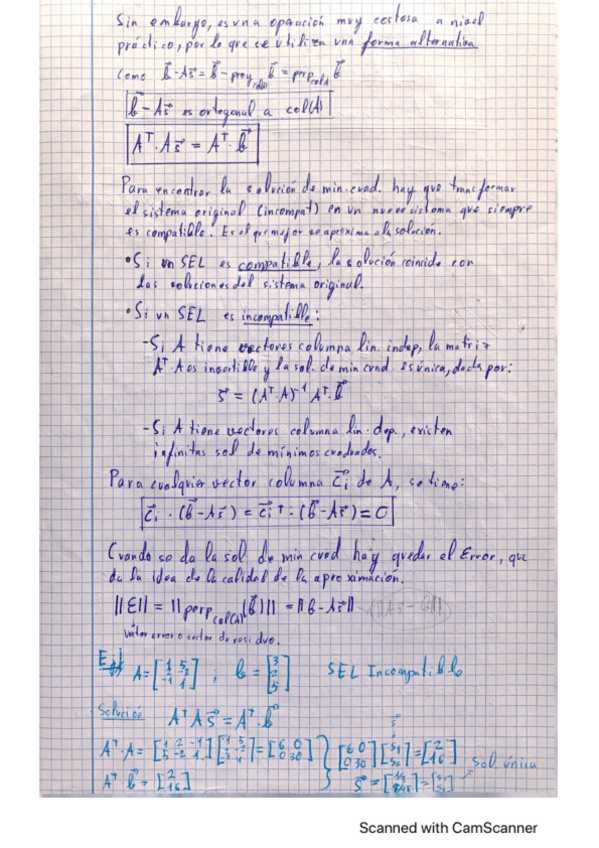 Sin embargo, es una operación muy costosa a nivel
práctico, por lo que se utiliza una forma alternativa
Como b⃗-As⃗ = b⃗ - proy_col(A) b⃗ = perp_col A b⃗
b⃗ - As⃗ es ortogonal a col(A)
Aᵀ·As⃗ = Aᵀ·b⃗
Para encontrar la solución de min.cuad. hay que transformar
el sistema original (incompat) en un nuevo sistema que siempre
es compatible. Es el que mejor se aproxima a la solución.
•Si un SEL es compatible, la solución coincide con
las soluciones del sistema original.
•Si un SEL es incompatible:
-Si A tiene vectores columna lin. indep, la matriz
Aᵀ·A es invertible y la sol. de min cuad es única, dada por:
s⃗ = (Aᵀ·A)⁻¹ Aᵀ·b⃗
-Si A tiene vectores columna lin·dep., existen
infinitas sol de mínimos cuadrados.
Para cualquier vector columna c⃗ᵢ de A, se tiene:
c⃗ᵢ · (b⃗-As⃗) = c⃗ᵢᵀ·(b⃗-As⃗) = 0
Cuando se da la sol de min cuad hay que dar el Error, que
da la idea de la calidad de la aproximación.
||E|| = ||perp_col(A)(b⃗)|| = ||b-As⃗||
vector error o vector de residuo.
Ej A = [1 5; 2 -2; -1 1] ; b = [3; 2; 5] SEL Incompatible
Solución AᵀAs⃗ = Aᵀ·b⃗
Aᵀ·A = [1 2 -1; 5 -2 1] [1 5; 2 -2; -1 1] = [6 0; 0 30] [6 0; 0 30] [s₁; s₂] = [2; 16]
Aᵀ·b⃗ = [2; 16] Sol. única
Scanned with CamScanner